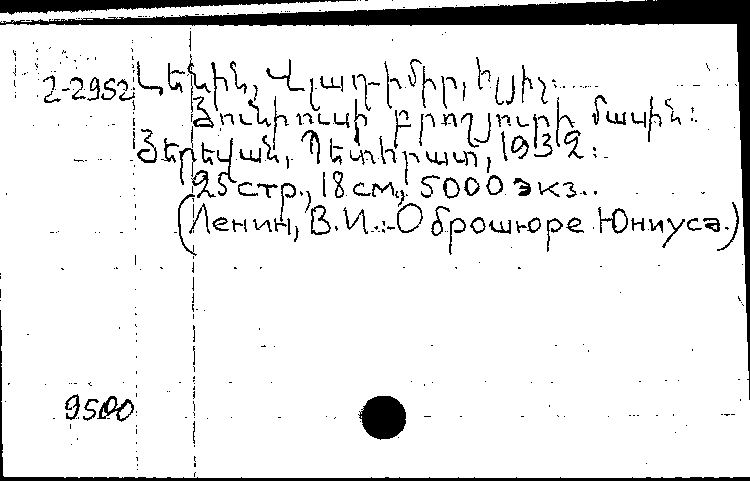 2-2952 Լենին, Վլադիմիր, Իլյիչ.
Յունիուսի բրոշյուրի մասին:
Յերեվան, Պետհրատ, 1932.
25 стр., 18 см., 5000 экз..
(Ленин, В.И.:-О брошюре Юниуса.)
9500